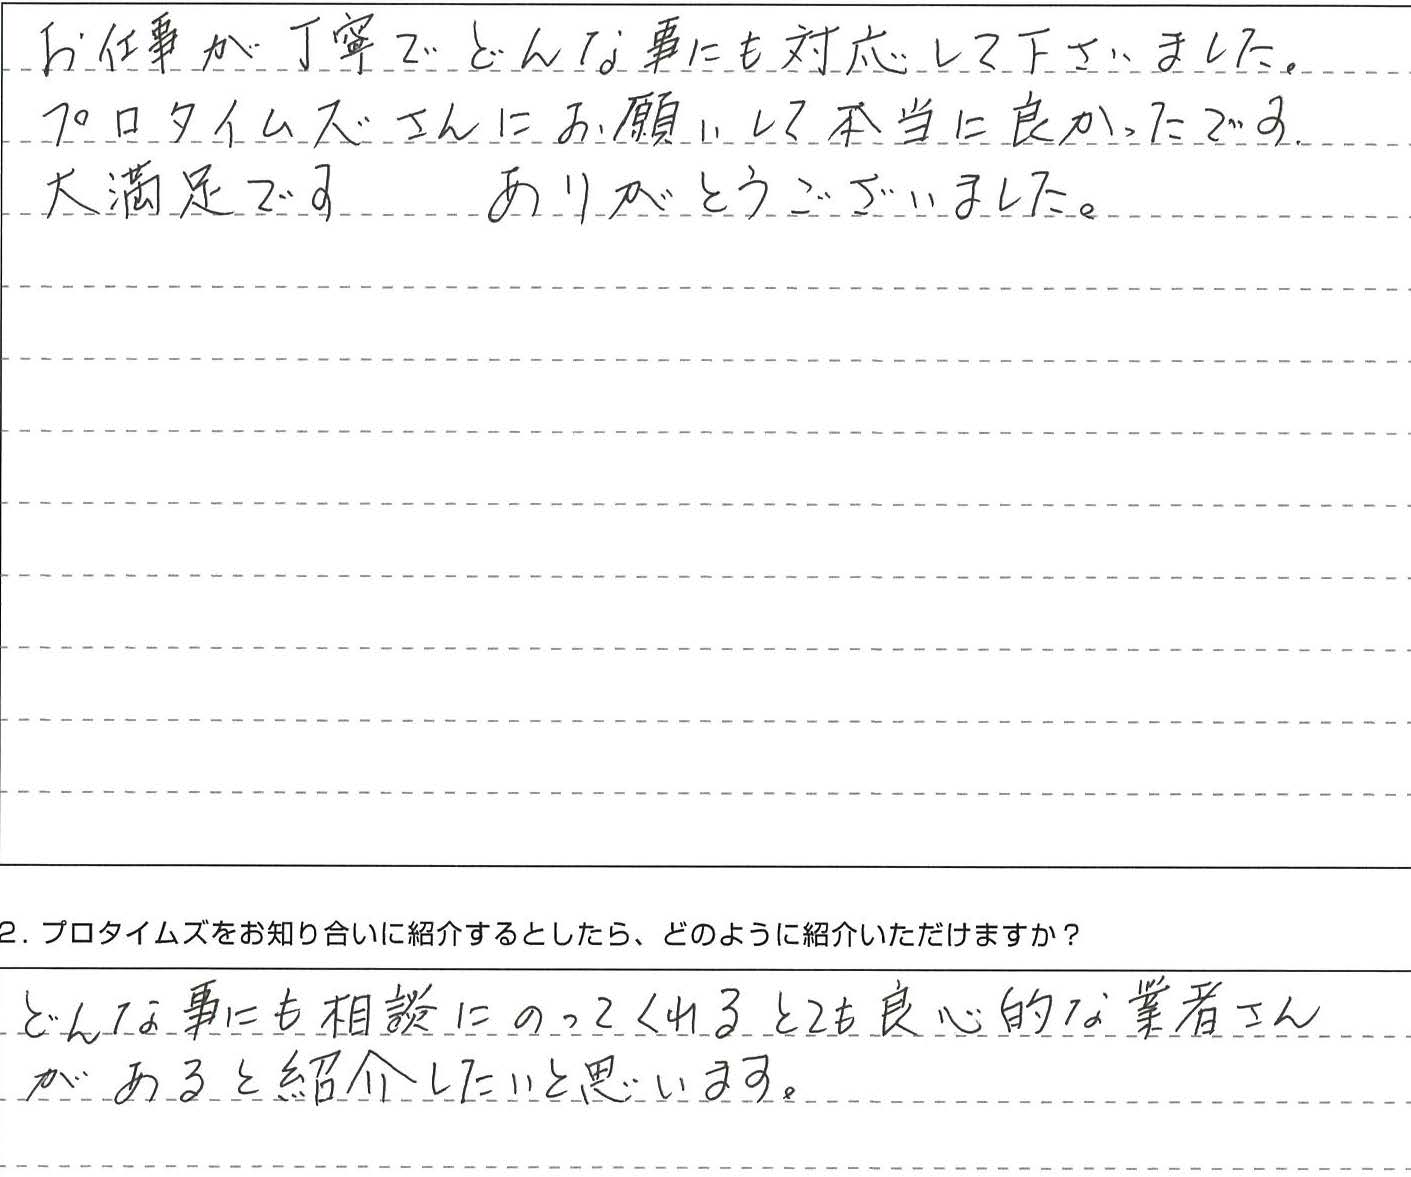 お仕事が丁寧でどんな事にも対応して下さいました。
プロタイムズさんにお願いして本当に良かったです.
大満足です　ありがとうございました。
2. プロタイムズをお知り合いに紹介するとしたら、どのように紹介いただけますか？
どんな事にも相談にのってくれるとても良心的な業者さん
があると紹介したいと思います。